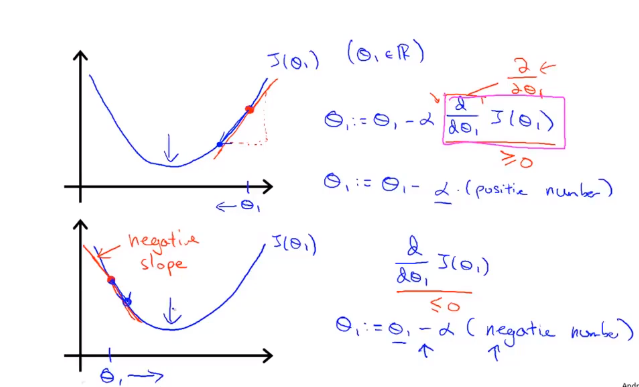 J(θ₁) (θ₁ ∈ ℝ)
∂/∂θ₁ ←
θ₁ := θ₁ - α d/dθ₁ J(θ₁)
≥ 0
← θ₁
θ₁ := θ₁ - α · (positie number)
negative
slope
J(θ₁)
d/dθ₁ J(θ₁)
≤ 0
θ₁ := θ₁ - α (negatie number)
θ₁ →
Andr